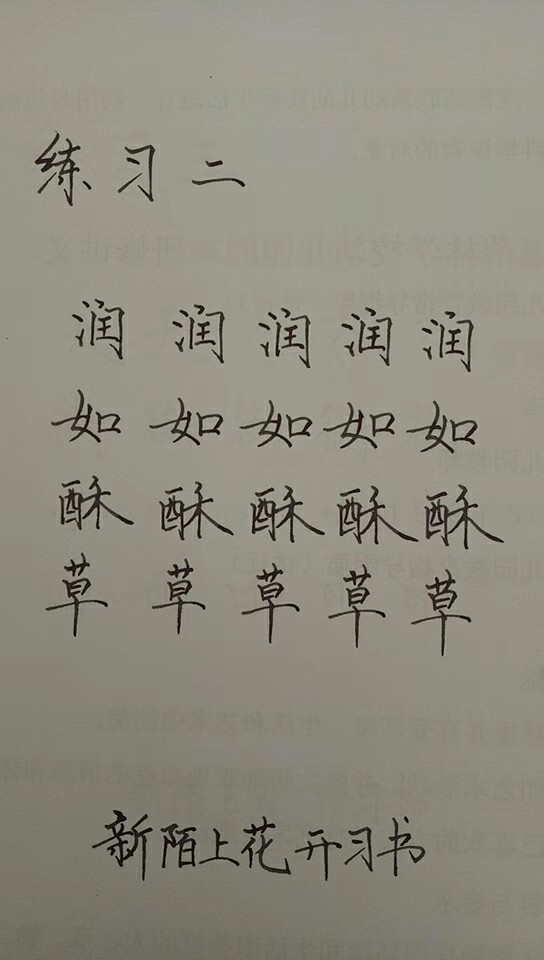 练习二
润润润润润
如如如如如
酥酥酥酥酥
草草草草草
新陌上花开习书